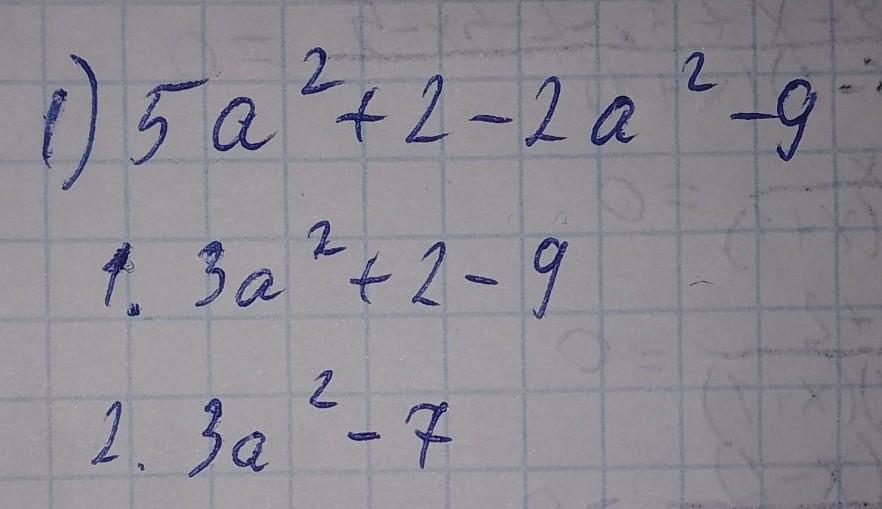 1) 5a² + 2 - 2a² - 9
1. 3a² + 2 - 9
2. 3a² - 7